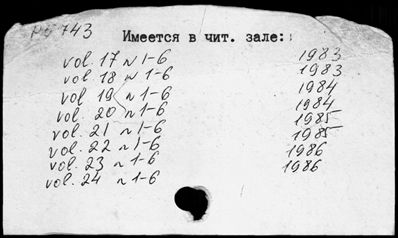 743
Имеется в чит. зале:
vol. 17 n 1-6 1983
vol. 18 n 1-6 1983
vol 19 n 1-6 1984
vol. 20 n 1-6 1984
vol. 21 n 1-6 1985
vol. 22 n 1-6 1985
vol. 23 n 1-6 1986
vol. 24 n 1-6 1986